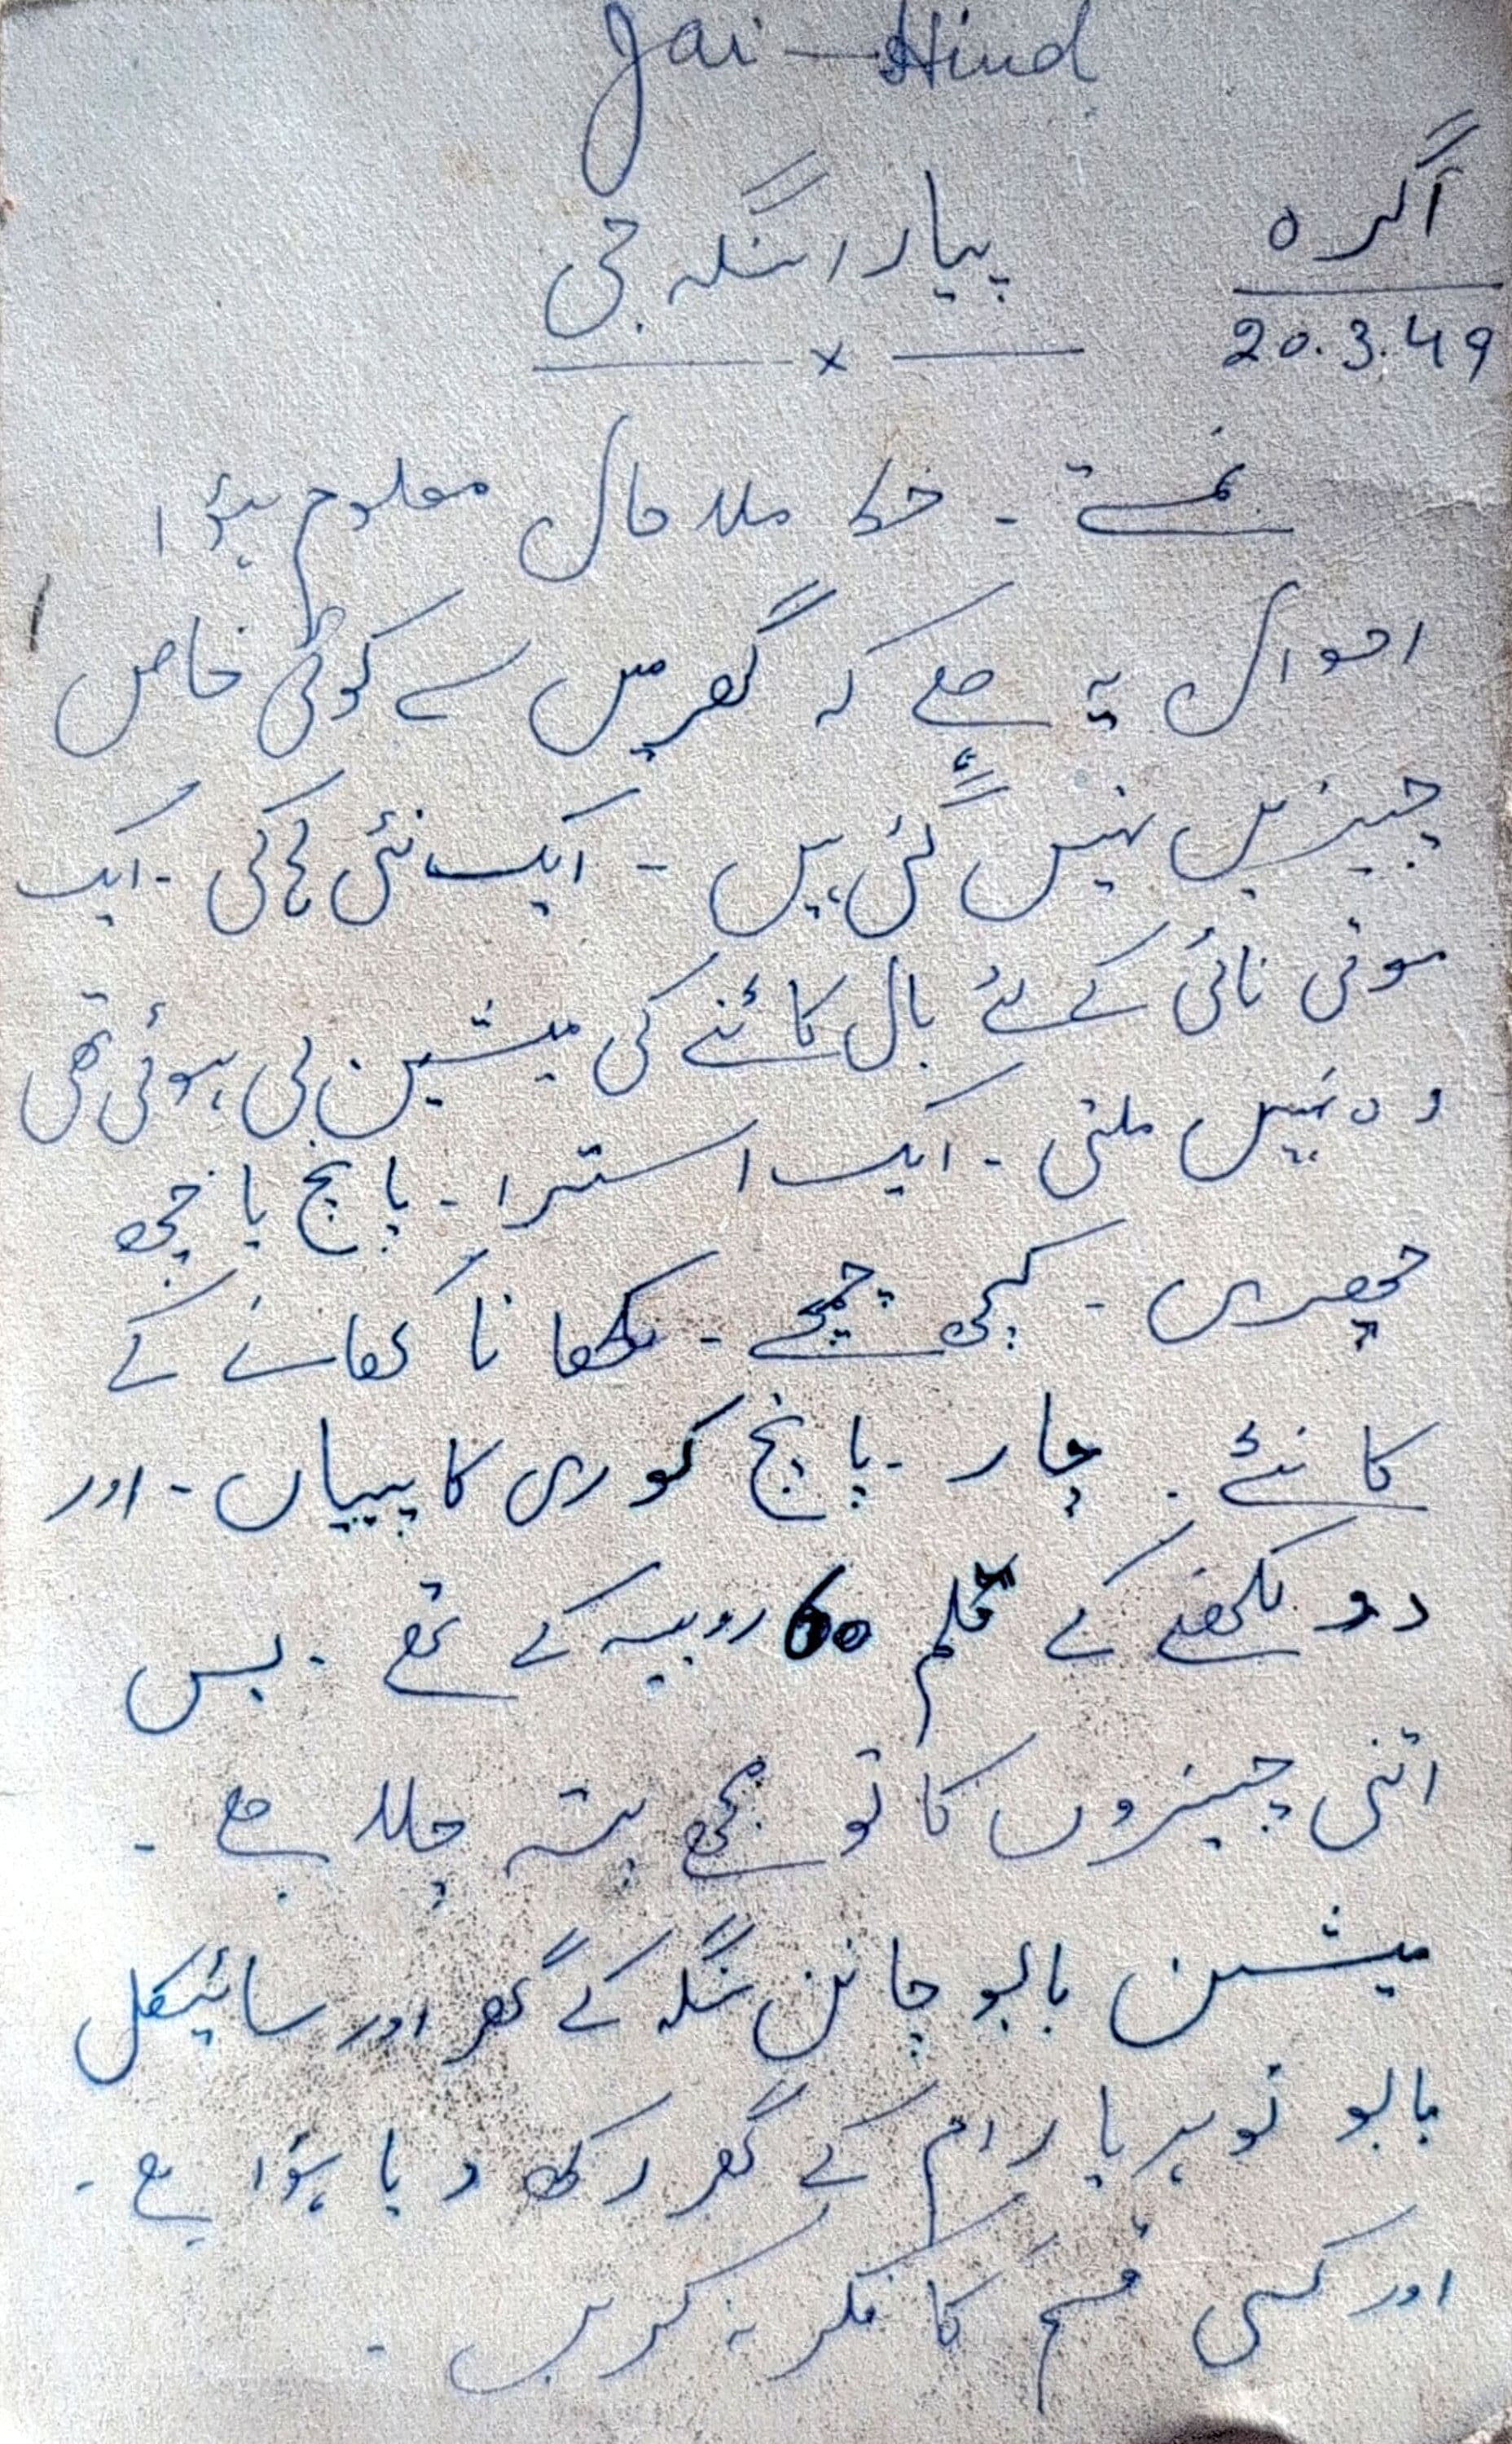 Jai-Hind
آگرہ
20.3.49
پیارا سنگہ جی
نمستے - خط ملا حال معلوم ہؤا
احوال یہ ہے کہ گھر میں سے کوئی خاص
چیزیں نہیں گئی ہیں - ایک نئی - ایک
نائی کے لئے بال کاٹنے کی میشین لی ہوئی تھی
وہ نہیں ملتی - ایک استرا - پانچ یا چھ
چھری - چمچے - کھانا کھانے کے
کانٹے - چار - پانچ کوری کاپیاں - اور
دو لکھنے کے قلم 60 روپیہ کے تھے - بس
اتنی چیزوں کا تو مجھے پتہ چلا ہے -
میشین بابو چانن سنگہ کے گھر اور سائیکل
بابو رام کے گھر رکھ دیا ہؤا ہے -
اور کسی قسم کا فکر نہ کریں -